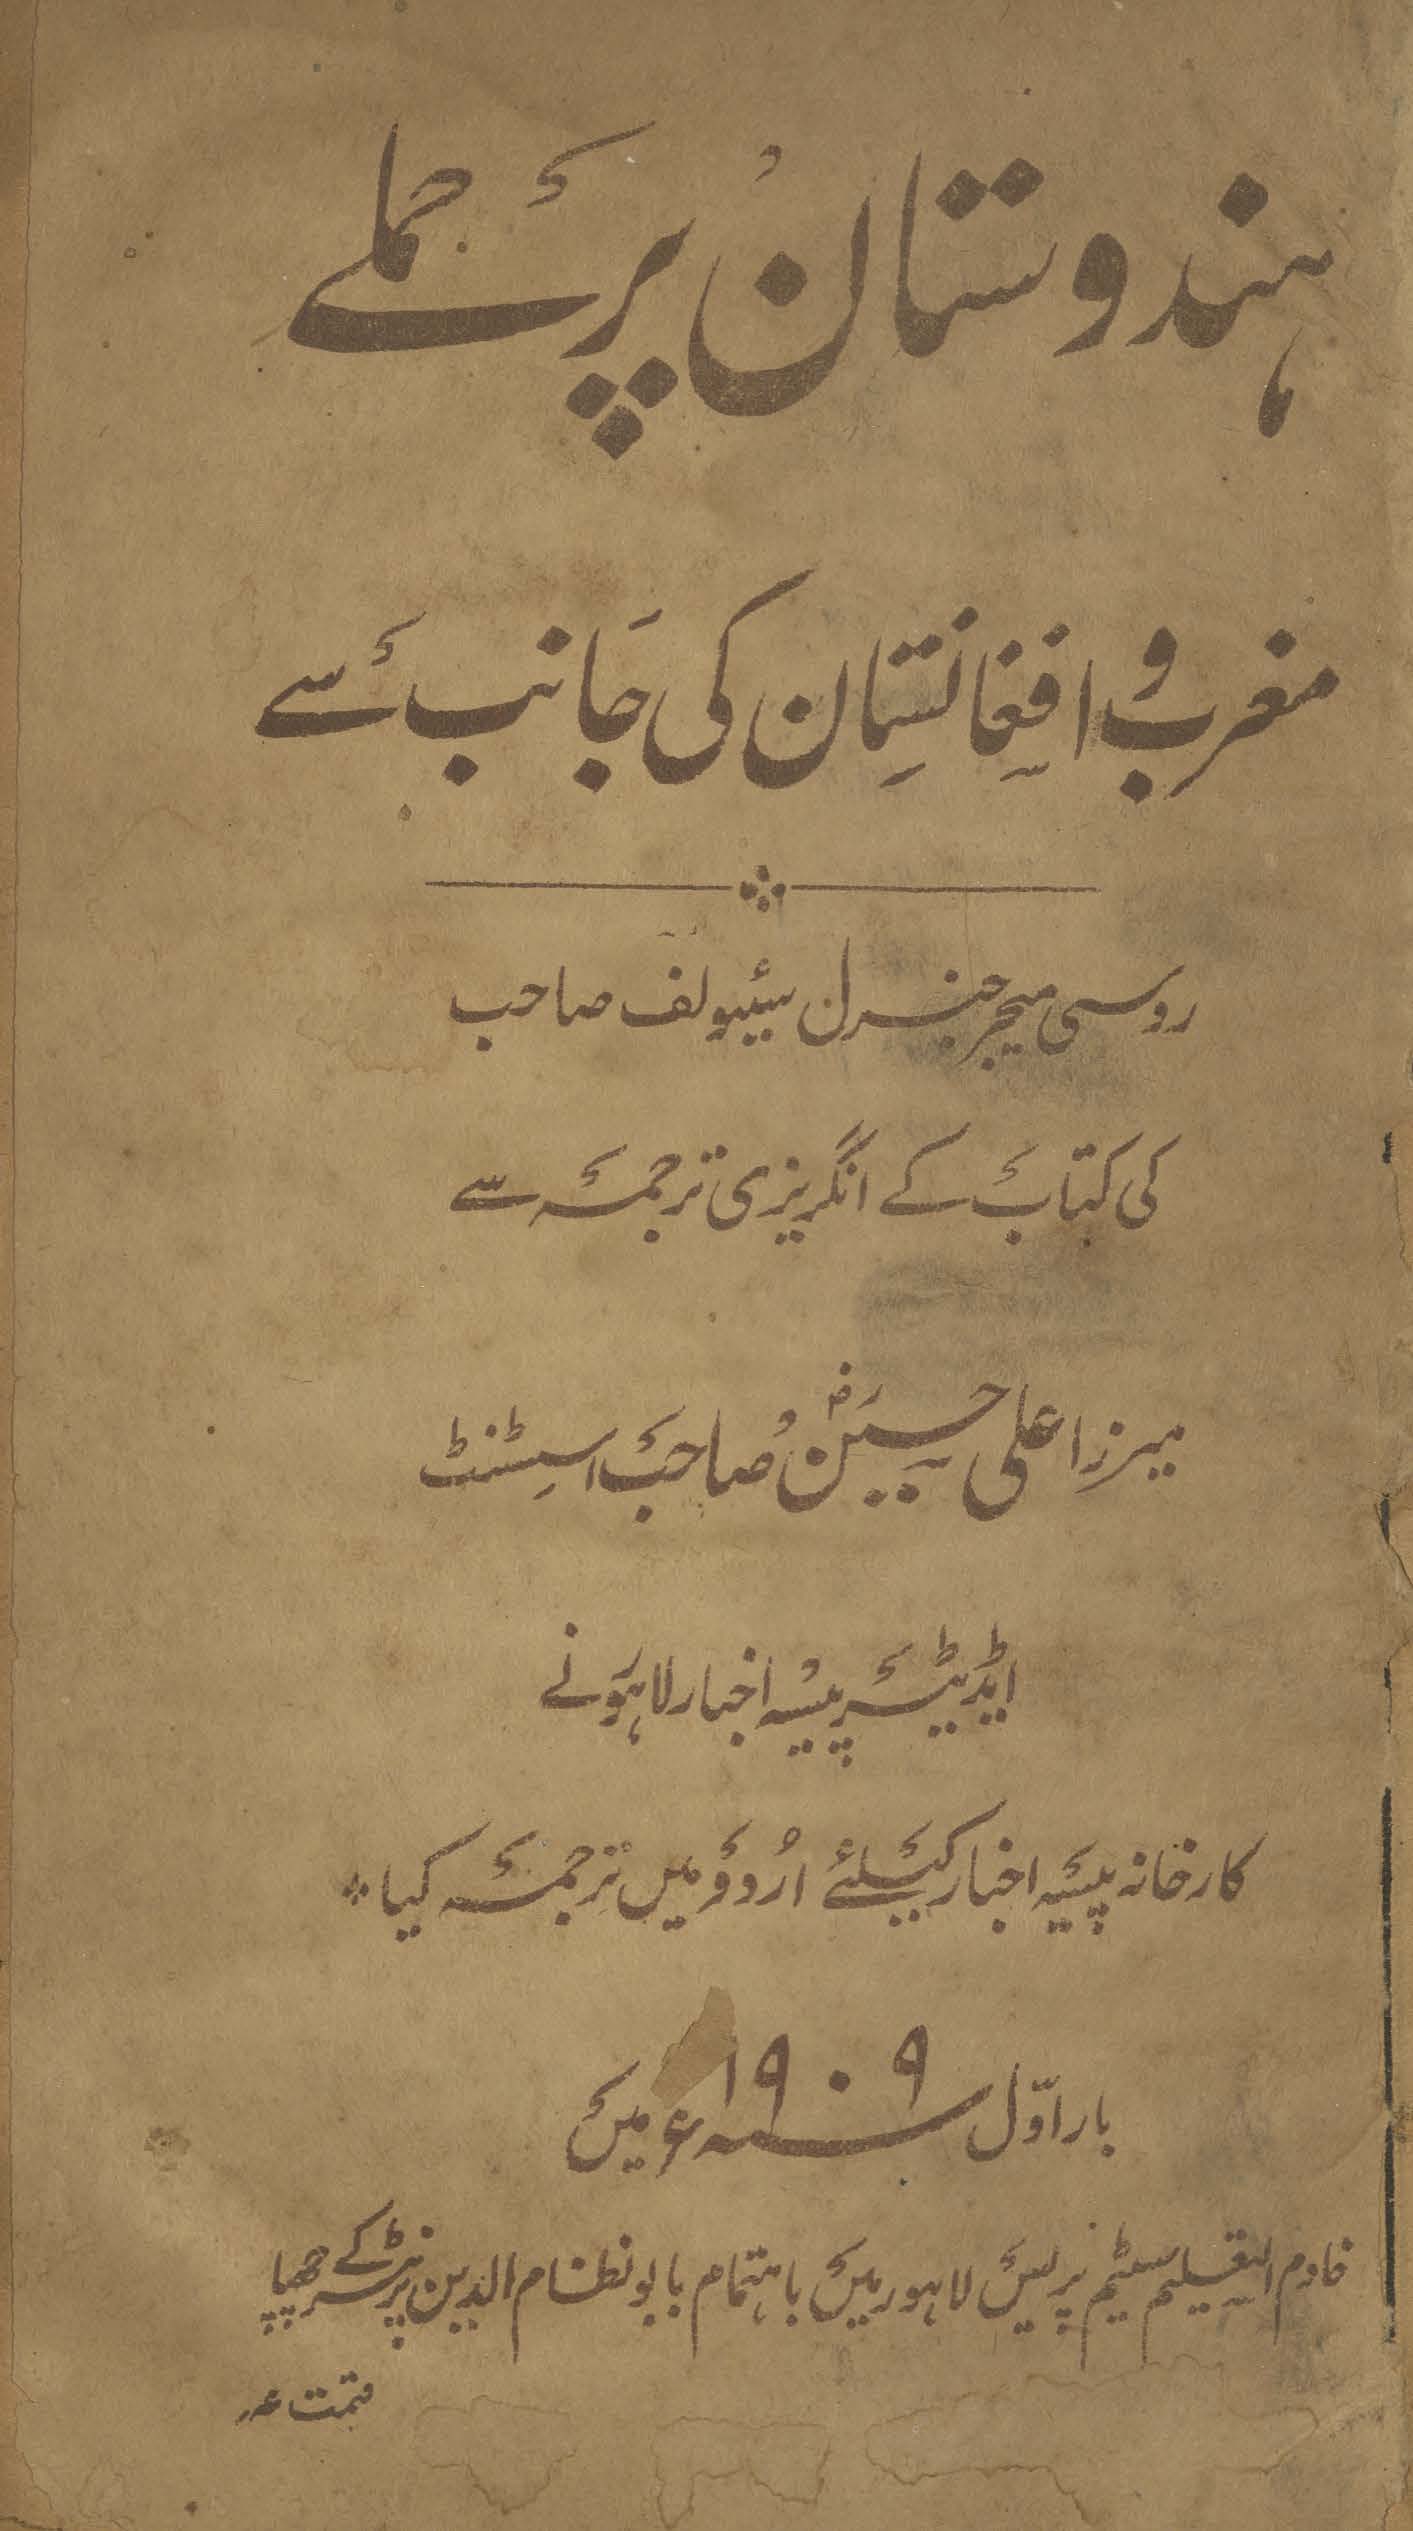 ہندوستان پر حملے
مغرب و افغانستان کی جانب سے
روسی میجر جنرل سیبولف صاحب
کی کتاب کے انگریزی ترجمہ سے
میرزا علی حسین صاحب اسٹنٹ
ایڈیٹر پیسہ اخبار لاہور نے
کارخانہ پیسہ اخبار کیلئے اردو میں ترجمہ کیا
بار اوّل سنہ ۱۹۰۹ء میں
خادم التعلیم سٹیم پریس لاہور میں باہتمام بابو نظام الدین پرنٹر کے چھپا
قیمت عہ